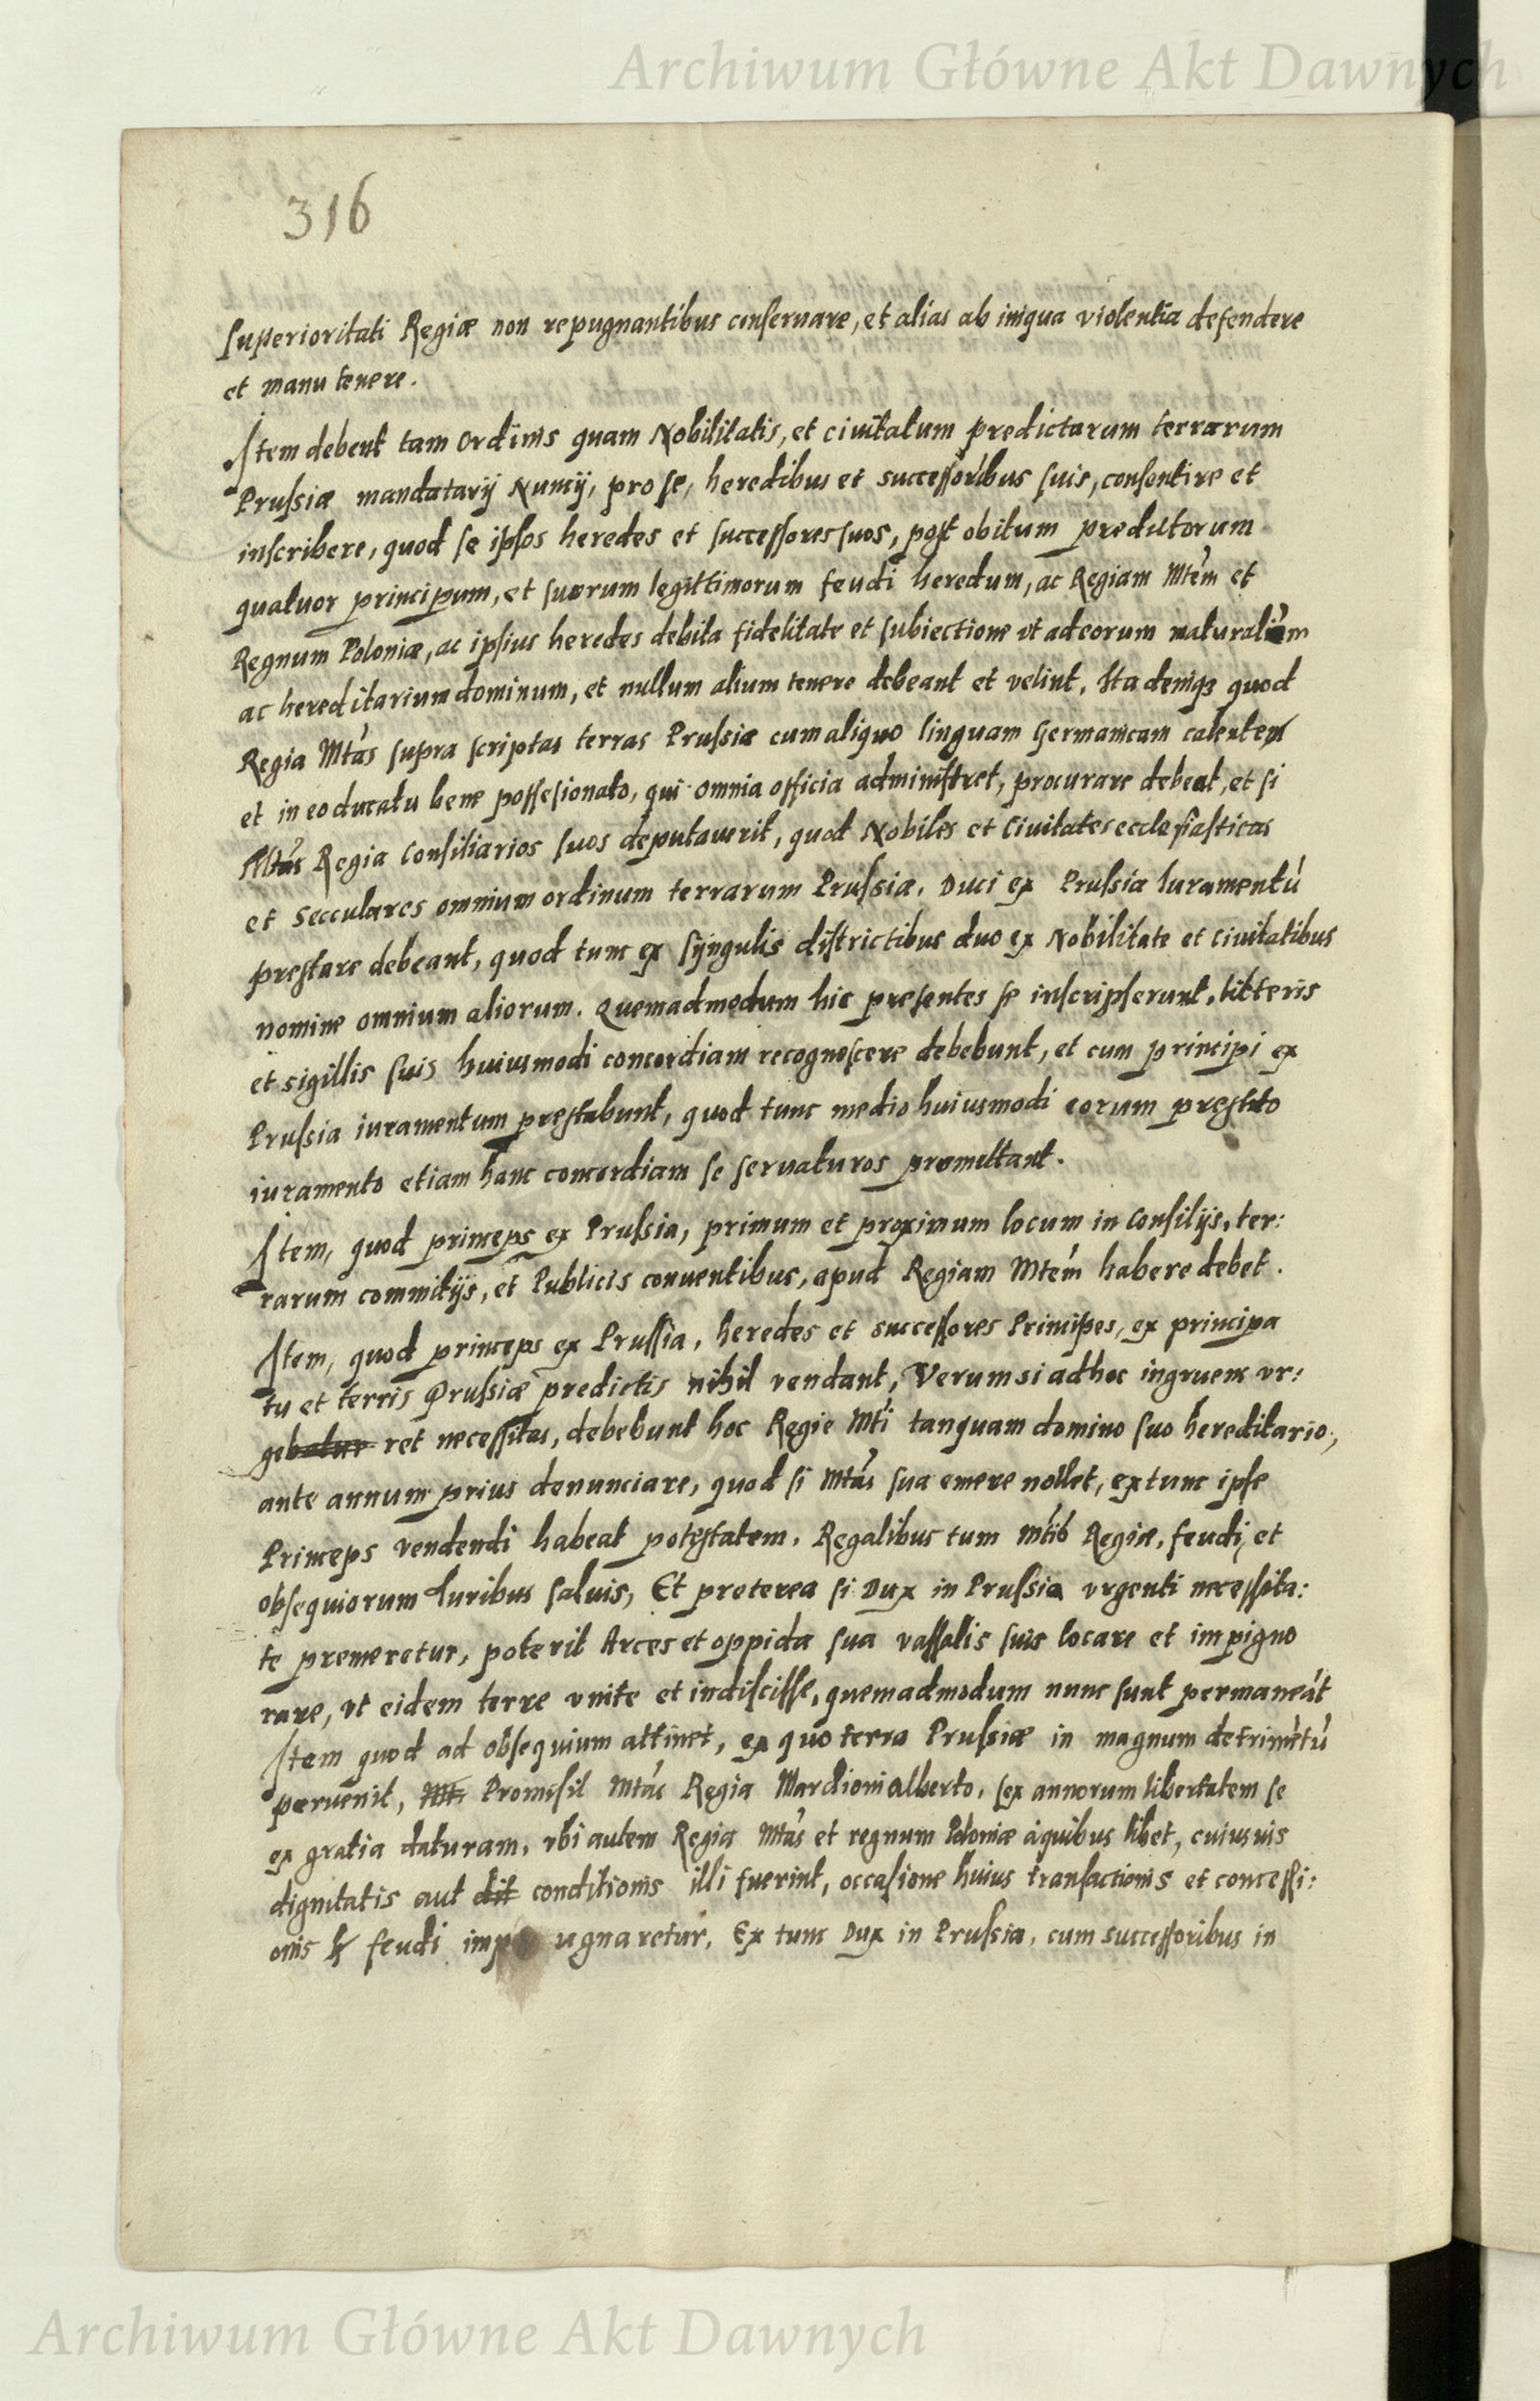 Archiwum Główne Akt Dawnych
316
superioritati Regiæ non repugnantibus conseruare, et alias ab iniqua violentia defendere
et manu tenere.
Item debent tam Ordinis quam Nobilitatis, et ciuitatum predictarum terrarum
Prussiæ mandatarij Nuncij, pro se, heredibus et successoribus suis, consentire et
inscribere, quod se ipsos heredes et successores suos, post obitum predictorum
quatuor principum, et suorum legittimorum feudi heredum, ac Regiam Mtem et
Regnum Poloniæ, ac ipsius heredes debita fidelitate et subiectione vt ad eorum naturalem
ac hereditarium dominum, et nullum alium tenere debeant et velint, Ita deniqz quod
Regia Mtas supra scriptas terras Prussiæ cum aliquo linguam Germanicam calentem
et in eo ducatu bene possesionato, qui omnia officia administret, procurare debeat, et si
Mtas Regia Consiliarios suos deputauerit, quod Nobiles et Ciuitates ecclesiasticas
et Secculares omnium ordinum terrarum Prussiæ, Duci ex Prussiæ Iuramentū
prestare debeant, quod tunc ex syngulis districtibus duo ex Nobilitate et Ciuitatibus
nomine omnium aliorum. Quemadmodum hic presentes se inscripserunt, litteris
et sigillis suis huiusmodi concordiam recognoscere debebunt, et cum principi ex
Prussia iuramentum prestabunt, quod tunc medio huiusmodi eorum prestito
iuramento etiam hanc concordiam se seruaturos promittant.
Item, quod princeps ex Prussia, primum et proximum locum in Consilijs, ter:
rarum commitijs, et Publicis conuentibus, apud Regiam Mtem habere debet.
Item, quod princeps ex Prussia, heredes et successores Principes, ex principa
tu et terris Prussiæ predictis nihil vendant, Verum si ad hoc ingruens vr:
gebatur ret necessitas, debebunt hoc Regie Mti tanquam domino suo hereditario,
ante annum prius denunciare, quod si Mtas sua emere nollet, ex tunc ipse
Princeps vendendi habeat potestatem, Regalibus tum Mtis Regiæ, feudi, et
obsequiorum Iuribus saluis, Et preterea si Dux in Prussia vrgenti necessita:
te premeretur, poterit Arces et oppida sua vassalis suis locare et impigno
rare, vt eidem terre vnite et indiscisse, quemadmodum nunc sunt permaneāt
Item quod ad obsequium attinet, ex quo terra Prussiæ in magnum detrimētū
peruenit, Mt. Promisit Mtas Regia Marchioni Alberto, sex annorum libertatem se
ex gratia daturam, vbi autem Regia Mtas et regnum Poloniæ à quibus libet, cuiusuis
dignitatis aut dit conditionis illi fuerint, occasione huius transactionis et concessi:
onis feudi imp ugnaretur, Ex tunc Dux in Prussia, cum successoribus in
Archiwum Główne Akt Dawnych